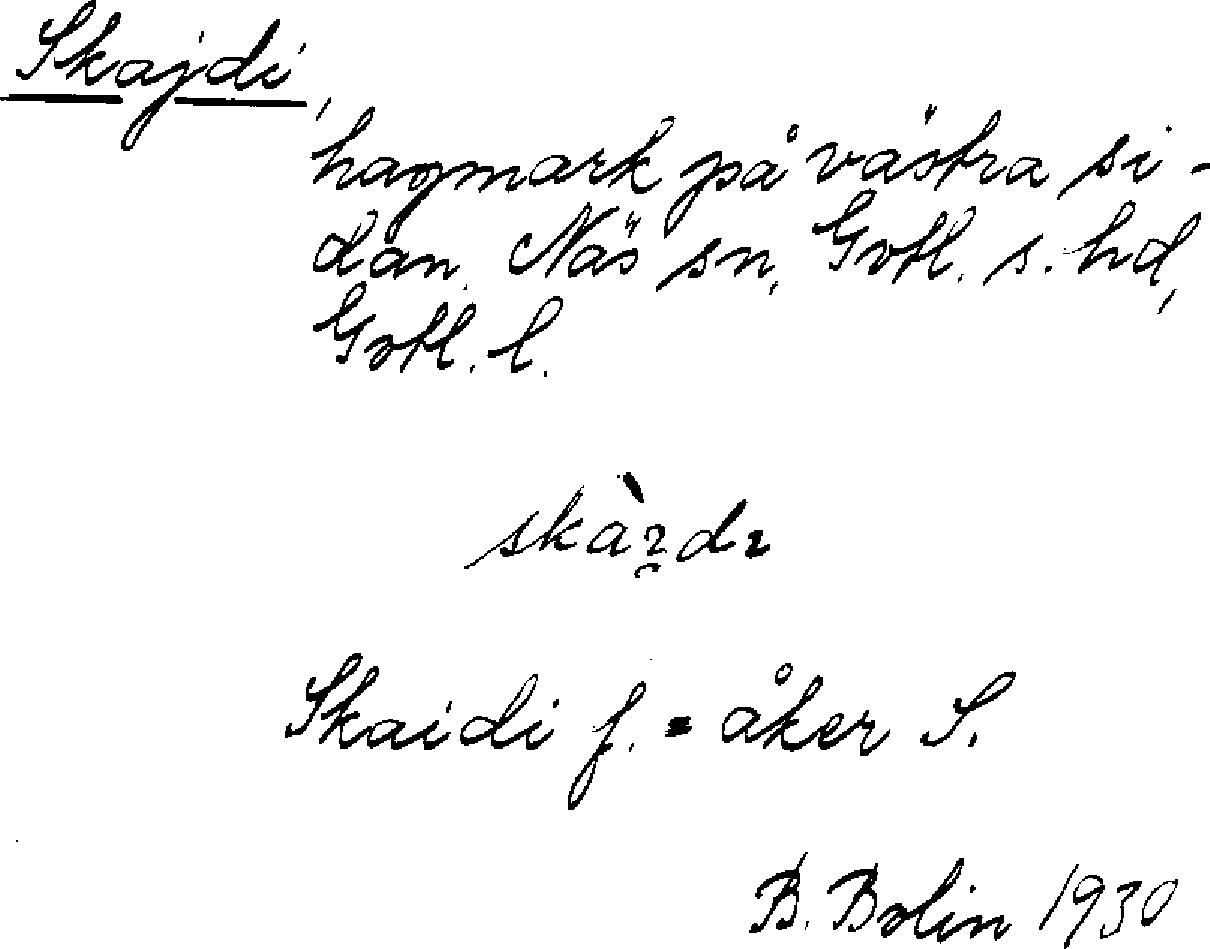 Skajdi,
hagmark på västra si-
dan. Näs sn, Gotl. s. hd,
Gotl. l.
skàı̯dı
Skaidi f. = åker S.
B. Bolin 1930